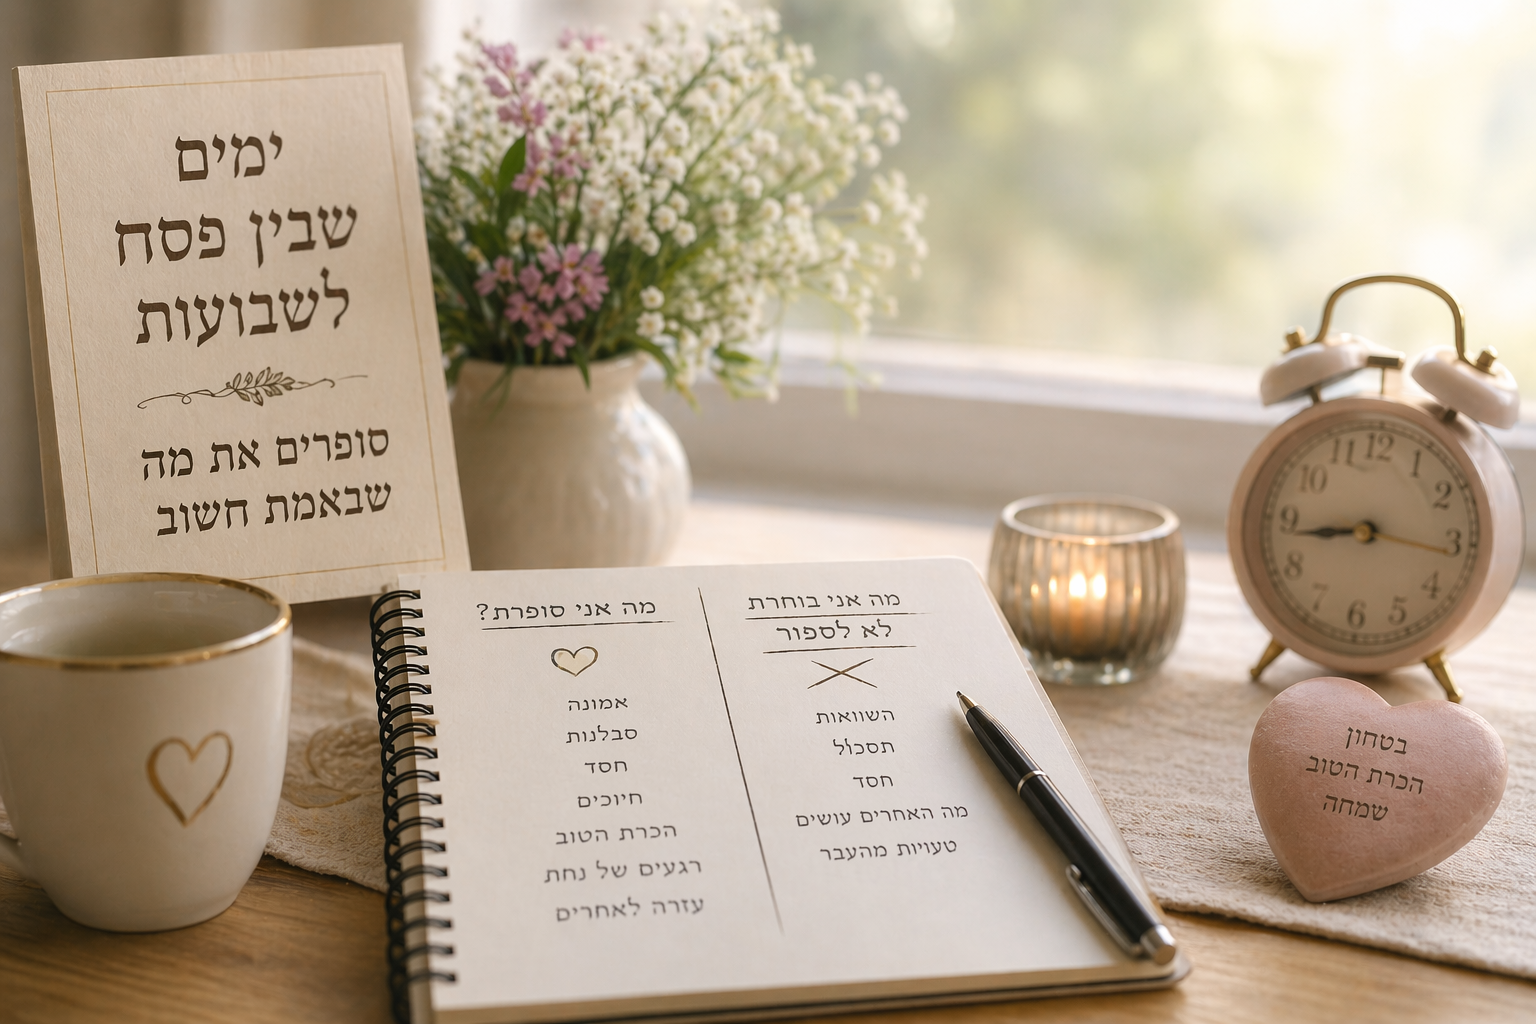 ימים
שבין פסח
לשבועות
סופרים את מה
שבאמת חשוב
מה אני סופרת?
אמונה
סבלנות
חסד
חיוכים
הכרת הטוב
רגעים של נחת
עזרה לאחרים
מה אני בוחרת
לא לספור
השוואות
תסכול
חסד
מה האחרים עושים
טעויות מהעבר
11 12 1
10 2
9 3
8 4
7 6 5
בטחון
הכרת הטוב
שמחה